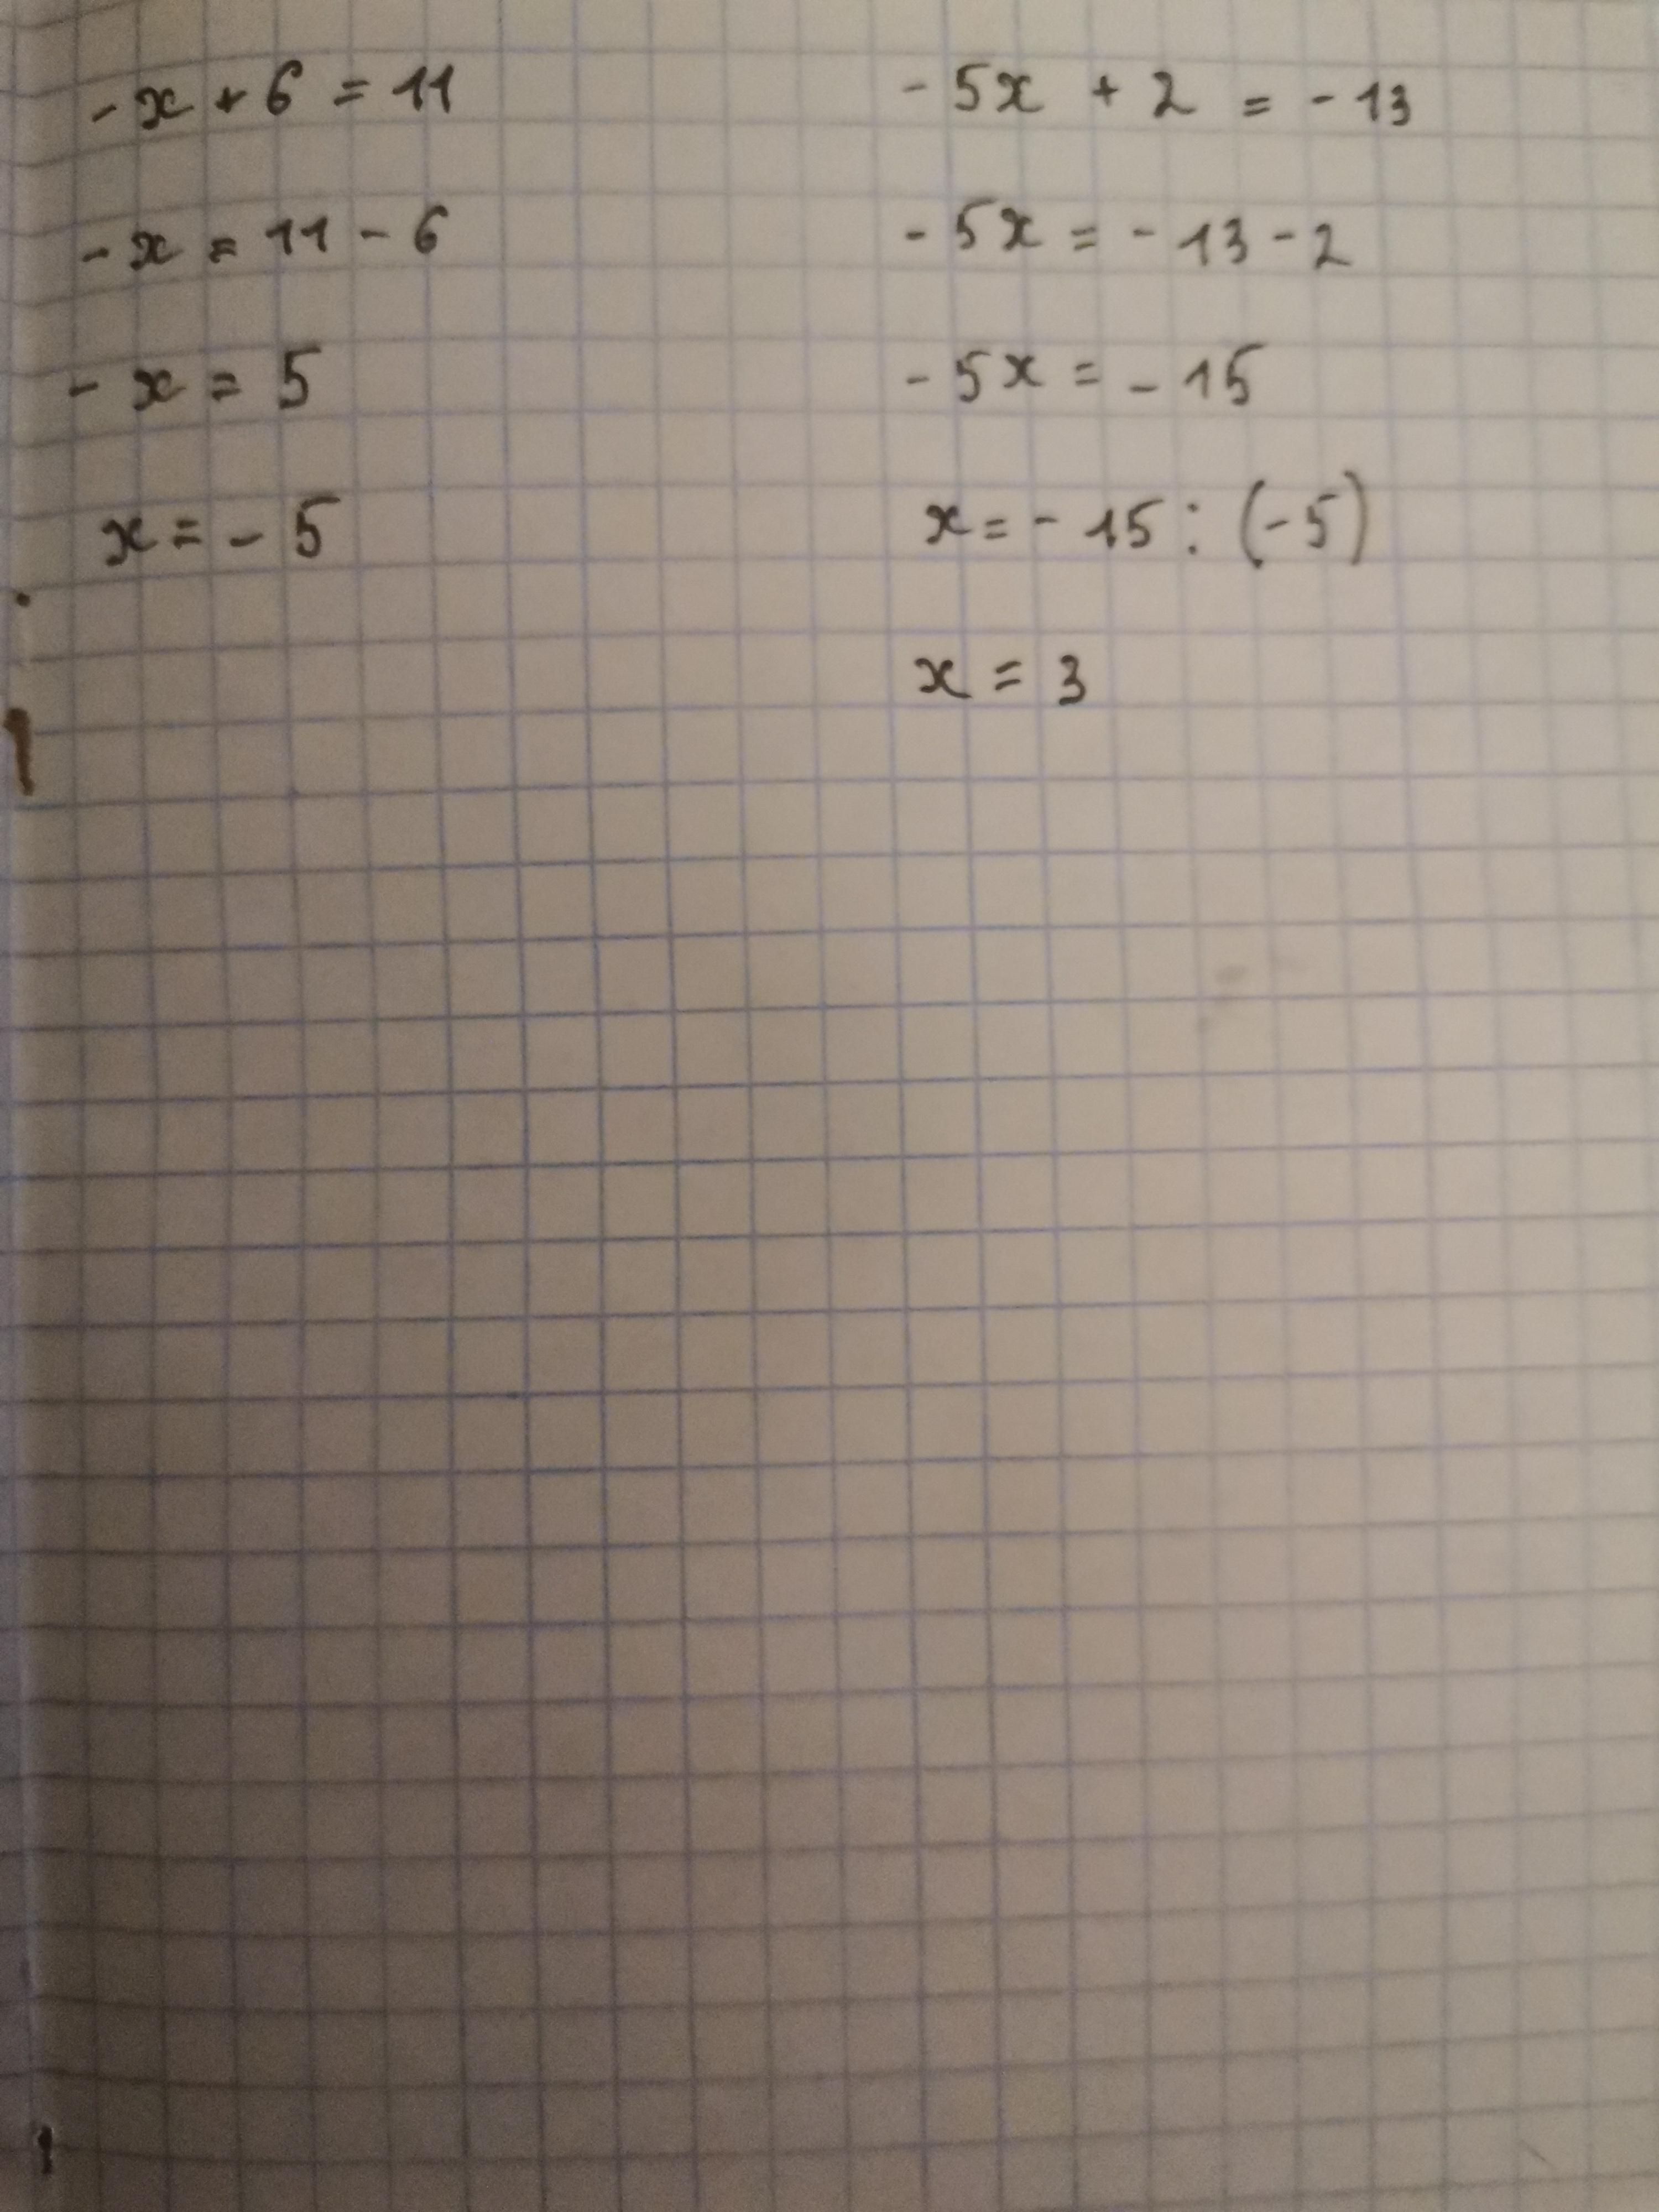 -x + 6 = 11
-x = 11 - 6
-x = 5
x = - 5
-5x + 2 = -13
-5x = -13 - 2
-5x = -15
x = -15 : (-5)
x = 3